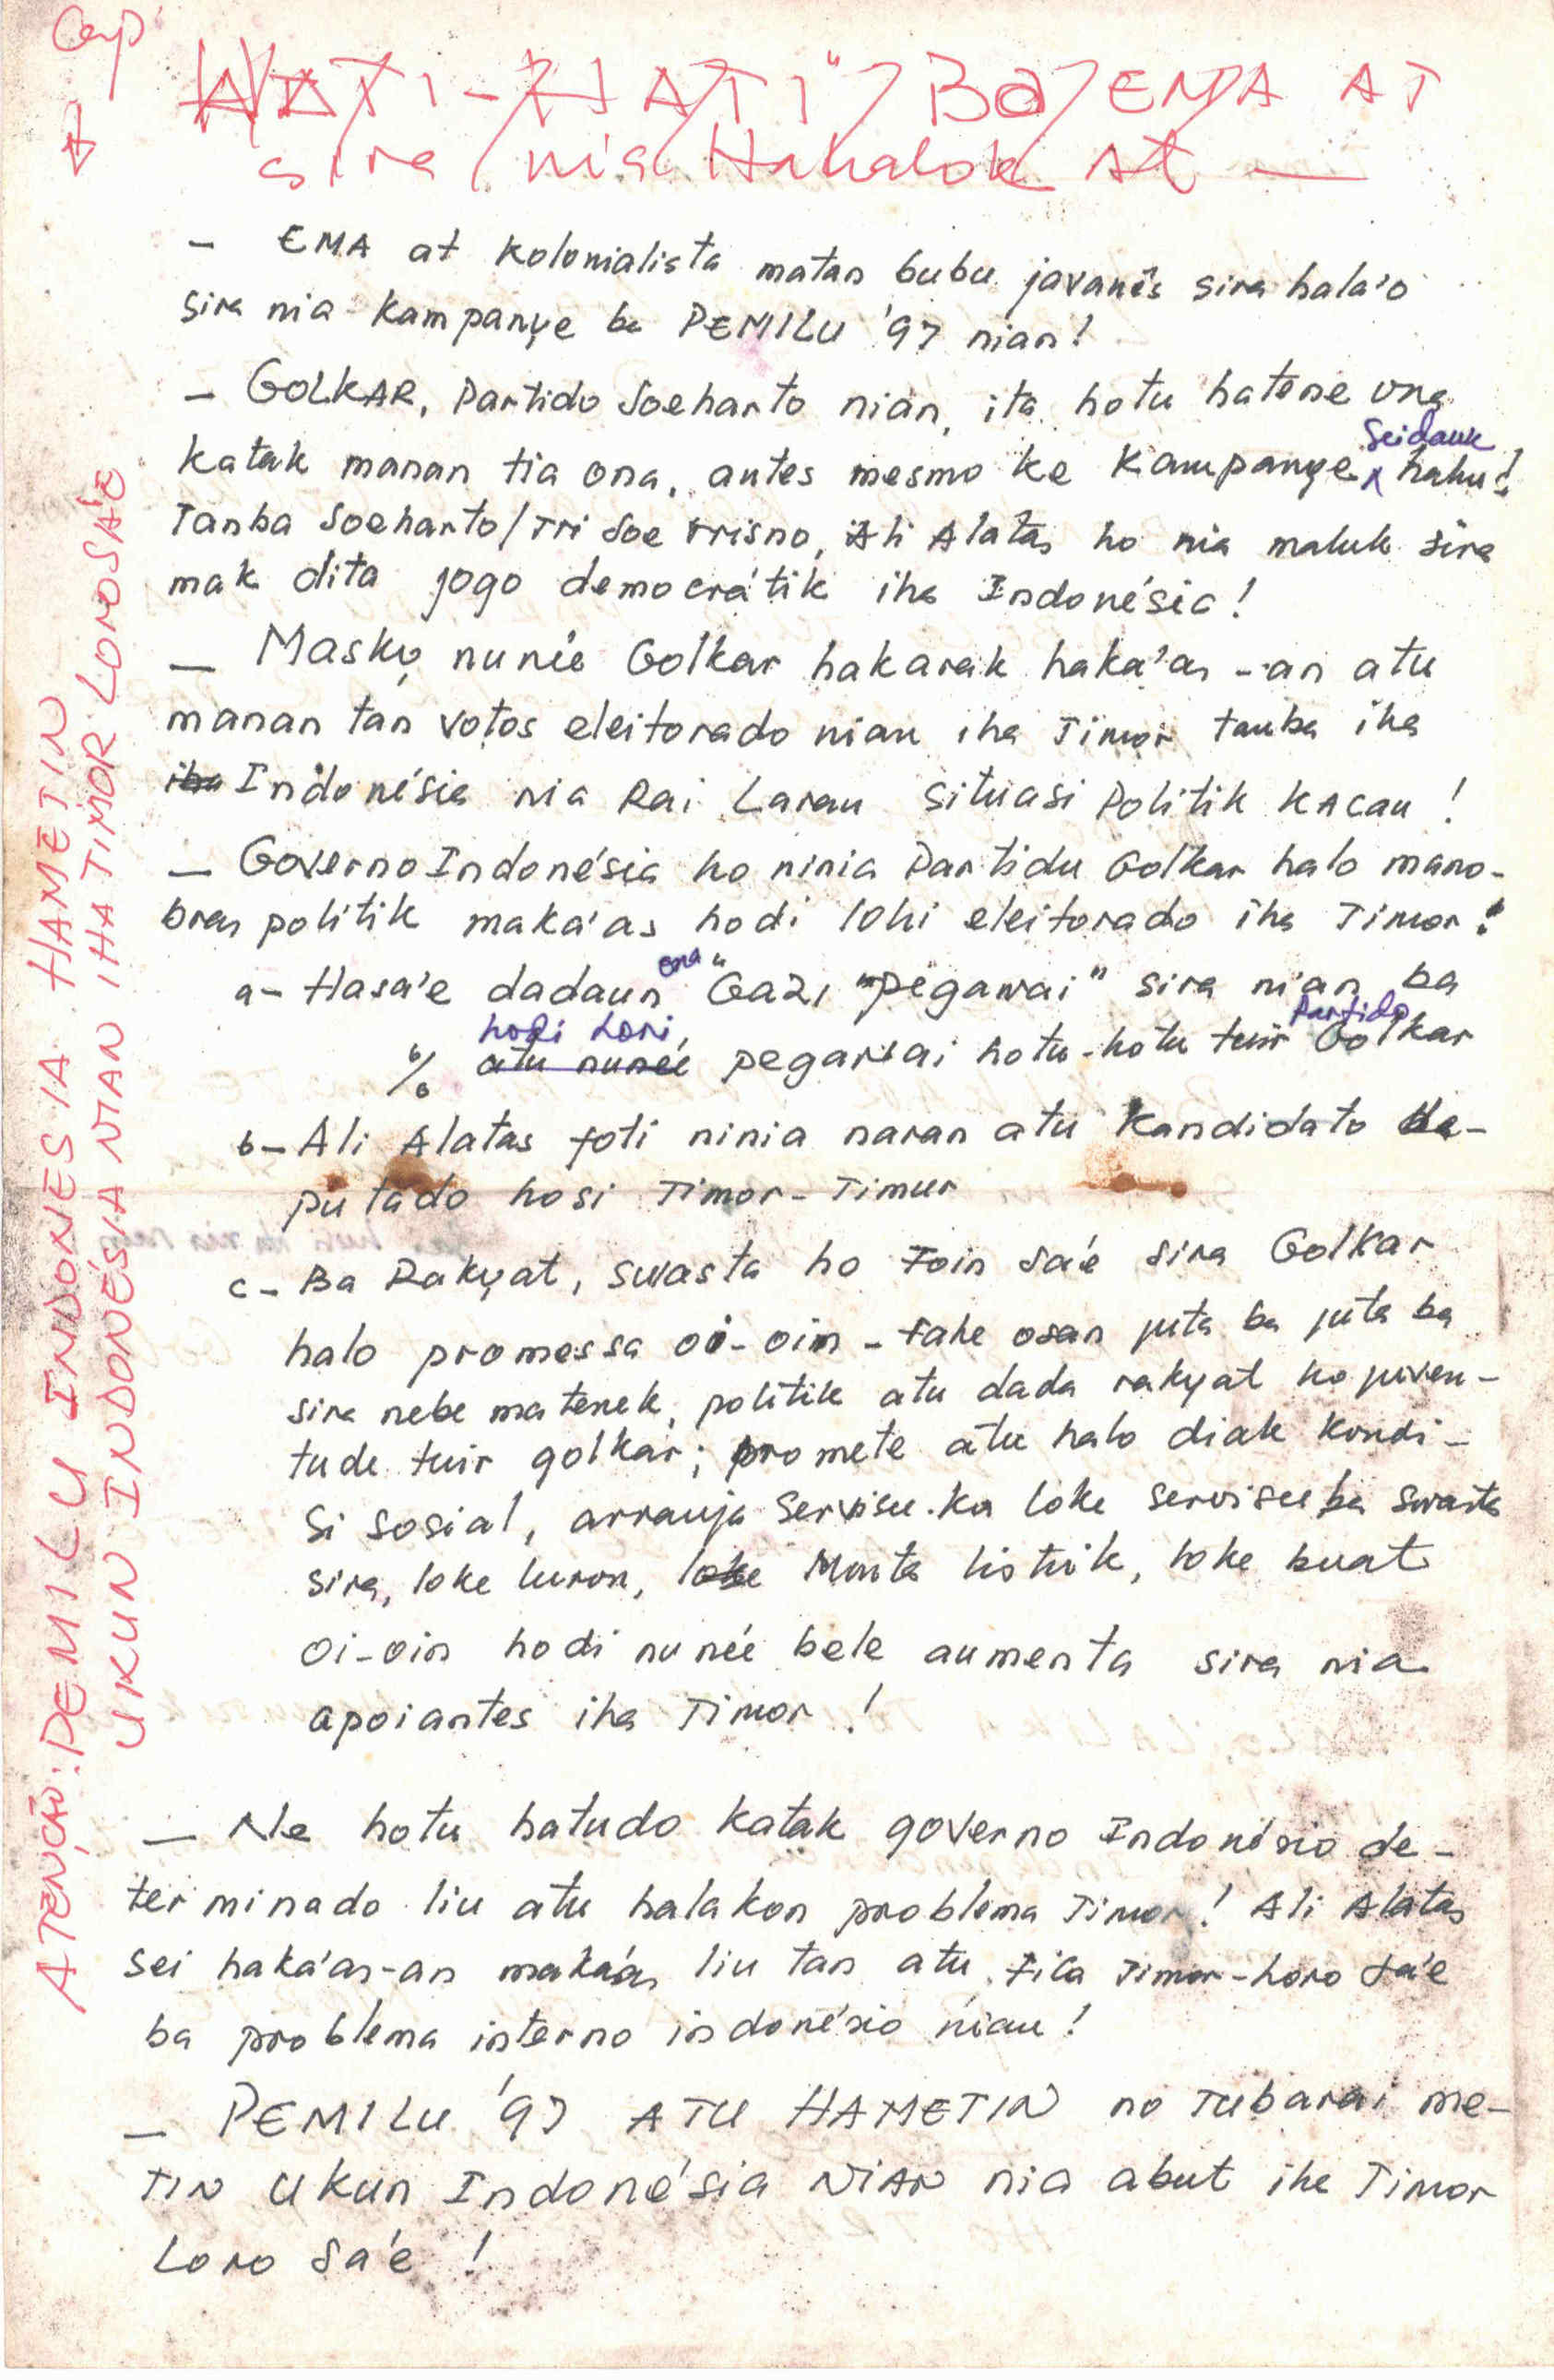 Cap
HATI-HATI" Ba EMA AT
sira nia Hahalok At —
— EMA at kolonialista matan bubu javanês sira hala'o
sira nia kampanye ba PEMILU '97 nian!
— GOLKAR, Partido Soeharto nian, ita hotu hatene ona
katak manan tia ona, antes mesmo ke kampanye seidauk hahu!
Tanba Soeharto/Tri Soetrisno, Ali Alatas ho nia maluk sira
mak dita jogo democrátik iha Indonésia!
— Masky nune'e Golkar hakarak haka'as-an atu
manan tan votos eleitorado nian iha Timor tanba iha
iha Indonésia nia Rai Laran situasi Politik KACau!
— Governo Indonésia ho ninia Partidu Golkar halo mano-
bras politik maka'as hodi lohi eleitorado iha Timor!
a- Hasa'e dadaun ona "Gazi "pegawai" sira nian ba
hodi Lori Partido
% atu nune'e pegawai hotu-hotu tuir Golkar
b- Ali Alatas foti ninia naran atu Kandidato de-
putado hosi Timor-Timur
c- Ba Rakyat, swasta ho Foin sa'e sira Golkar
halo promessa oi-oin - fahe osan juta ba juta ba
sira nebe matenek, politik atu dada rakyat ho juven-
tude tuir golkar; promete atu halo diak kondi-
si sosial, arranja servisu ka loke servisu ba swasta
sira, loke luron, loke Monta listrik, loke buat
oi-oin hodi nune'e bele aumenta sira nia
apoiantes iha Timor!
— Ne hotu hatudo katak governo Indonésio de-
terminado liu atu halakon problema Timor! Ali Alatas
sei haka'as-an maka'as liu tan atu fila Timor-Loro Sa'e
ba problema interno indonésio nian!
— PEMILU '97 ATU HAMETIN no Tuba rai me-
TIN Ukun Indonésia NIAN nia abut iha Timor
Loro Sa'e!
ATENÇÃO: PEMILU INDONESIA HAMETIN
UKUN INDONÉSIA NIAN IHA TIMOR LOROSA'E